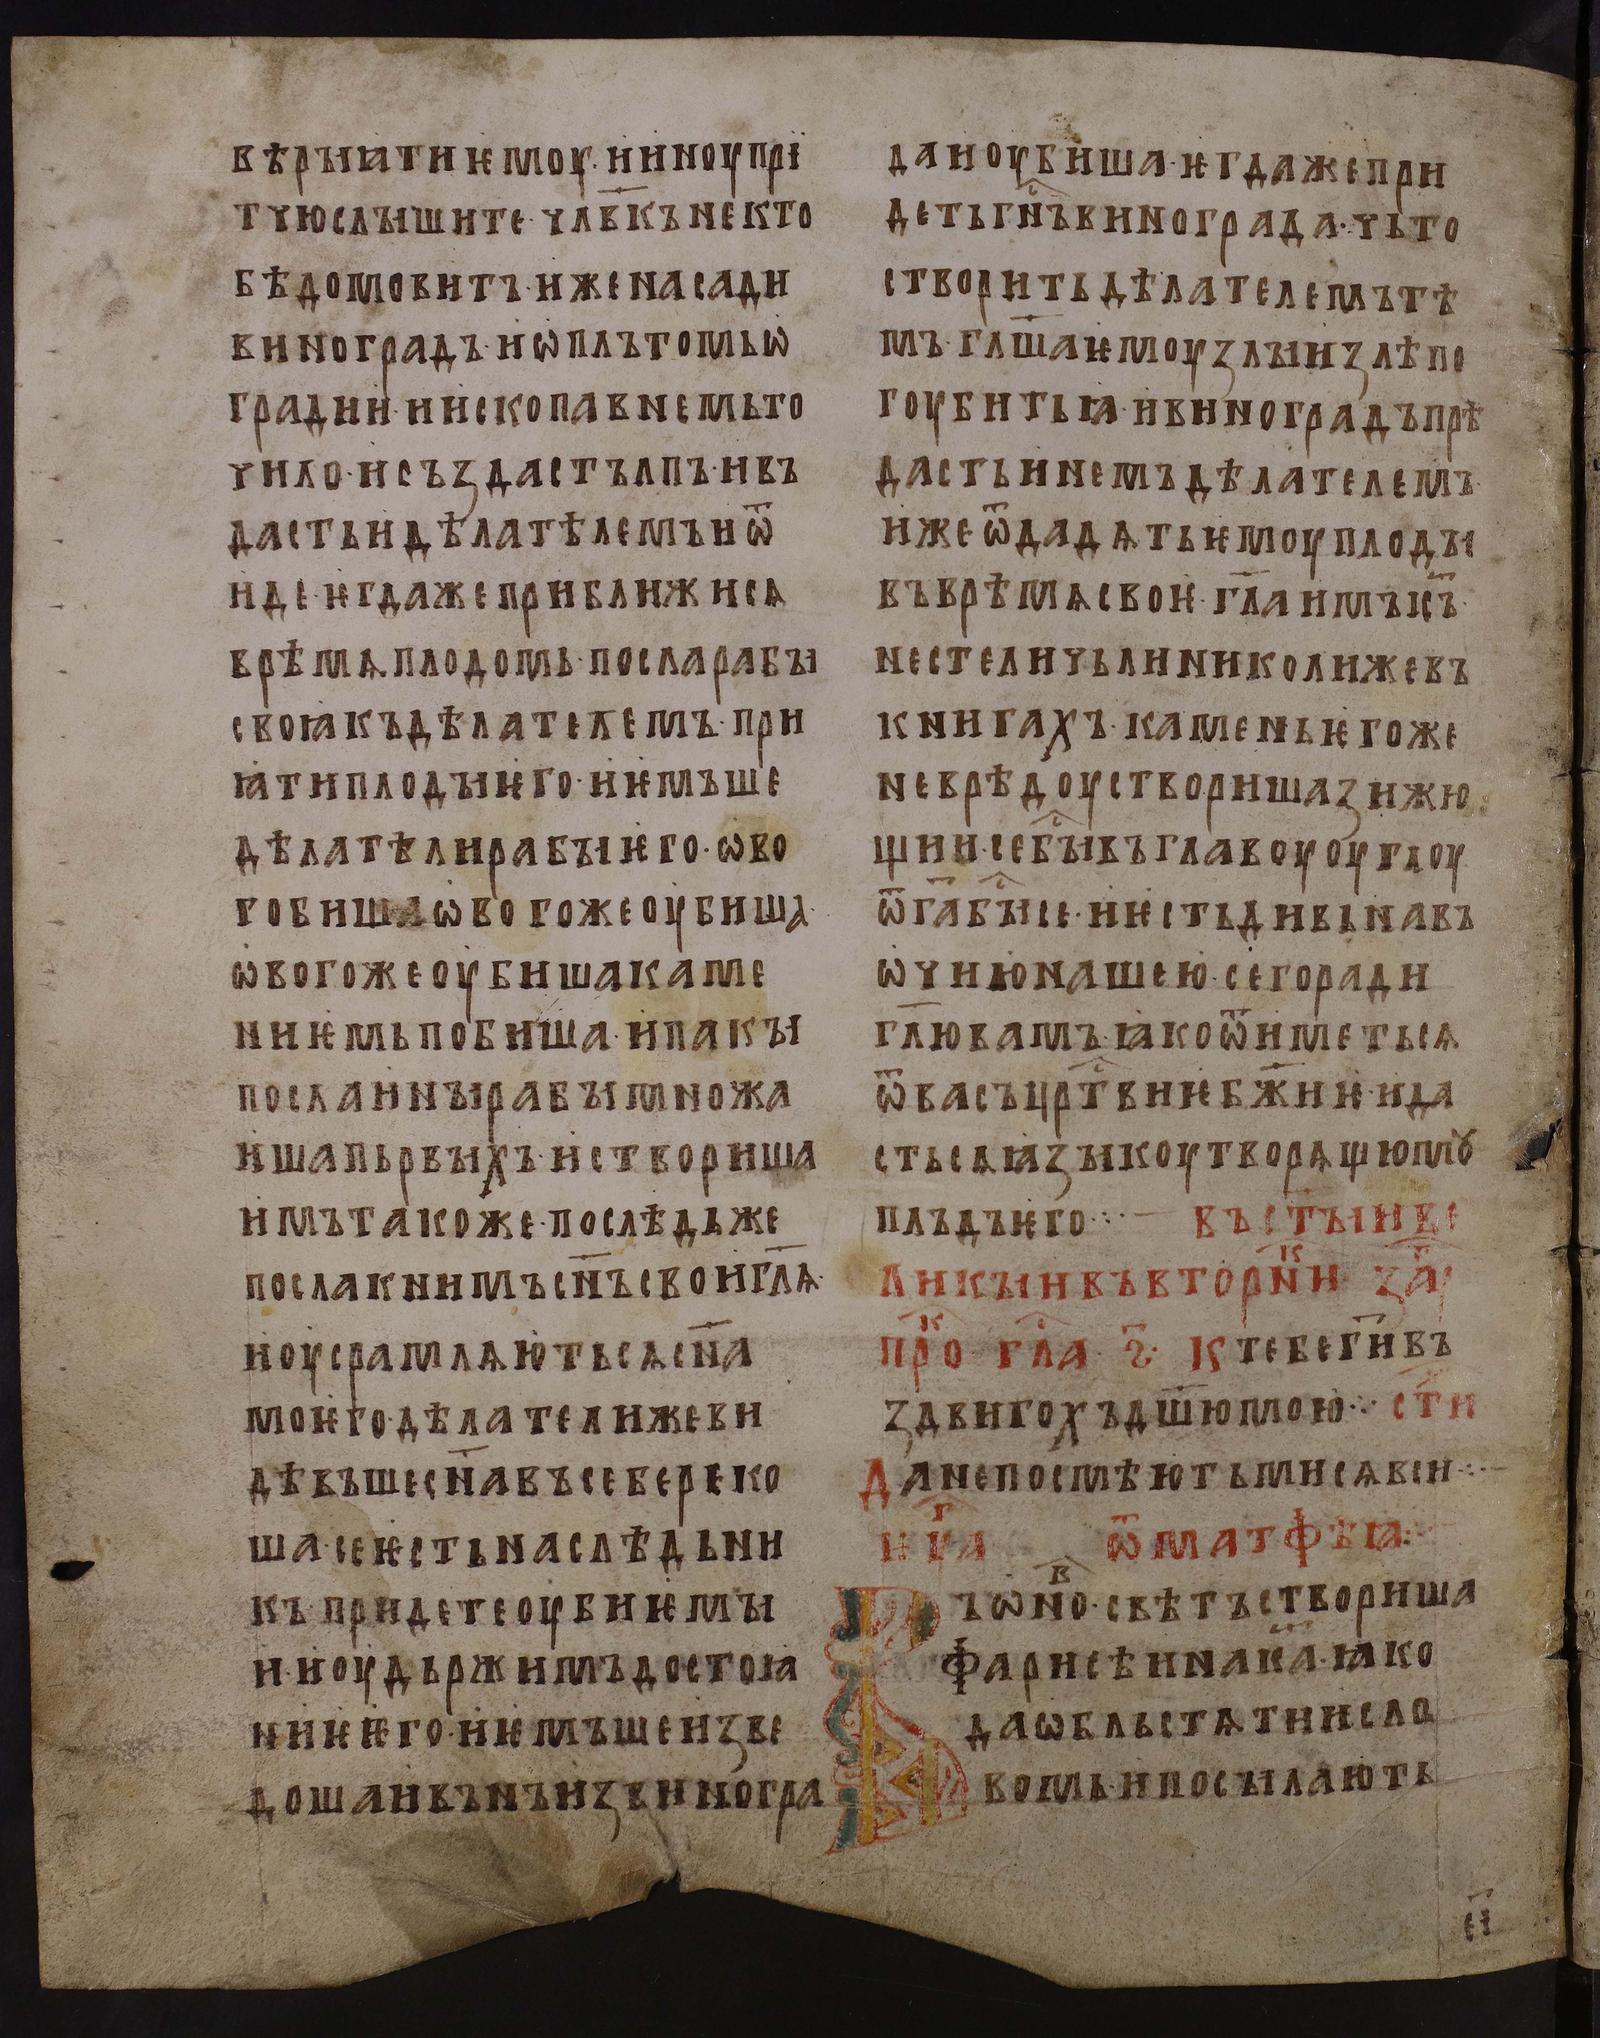 вѣрꙑꙗтиѥмоу·ининоупрї
тчюслꙑшите·чл҃вкънекто
бѣдомовитъ·иженасади
виноградъ·иѡплътомьѡ
градии·иископавнемьто
чило·исъꙁдастълпъ·ивъ
дастьидѣлатѣлемъиѿ
иде·ѥгдажеприближисѧ
врѣмѧплодомъ·посларабꙑ
своꙗкъдѣлателемъ·при
ꙗтиплодꙑѥго·иѥмъше
дѣлатѣлирабꙑѥго·ѡво
гобишаѡвогожеоубиша·
ѡвогожеоубишакаме
ниѥмьпобиша·ипакꙑ
посланнꙑрабꙑмножа
ишапьрвꙑхъ·истворища
имътакоже·послѣдьже
послакнимъсн҃ъсвоигл҃ѧ·
ноусрамлѧютьсѧсн҃а
моѥго·дѣлателижеви
дѣвъшесн҃авъсебереко
ша·сеѥстьнаслѣдьни
къ·придетеоубиѥмꙑ
и·иоудьржимъдостоꙗ
ниѥѥго·иѥмъшеиꙁве
дошаивънъиꙁвиногра
даиоубиша·ѥгдажепри
детьгн҃ъвинограда·чьто
створитьдѣлателемътѣ
мъ·гл҃шаѥмоуꙁлꙑиꙁлѣпо
гоубитьꙗ·ивиноградъпрѣ
дастьинемъдѣлателемъ·
ижеѿдадѧтьѥмоуплодꙑ
въврѣмѧсвоѥ·гл҃аимъис҃ъ·
нестеличьлиниколижевъ
книгахъ·каменьѥгоже
неврѣдоустворишаꙁижю
щии·себꙑ҇въглавоуоуглоу
ѿг҃абꙑ҇се·иѥстьдивьнавъ
ѡчиюнашею·сегоради
гл҃ювамъ·ꙗкоѿиметьсѧ
ѿвасъцр҇твиѥбж҃иѥ·ида
стьсѧꙗꙁꙑкоутворѧщюмꙋ
плъдъѥго·:·— въст҃ꙑиве
ликꙑивъвторн҃ки ꙁа҃ч
прⷪ҇к гл҇а ꙅ҃· ктебег҃ивъ
ꙁдвигохъдш҃юмою·:· ст҃и
Данепосмѣютьмисѧвси·:·—
иг҃а ѿматфѣꙗ:·
Въѡн҇о·свѣтъствориша
фарисѣинаис҃а·ꙗко
даѡбльстѧтиисло
вомь·ипосꙑлають
е҃і